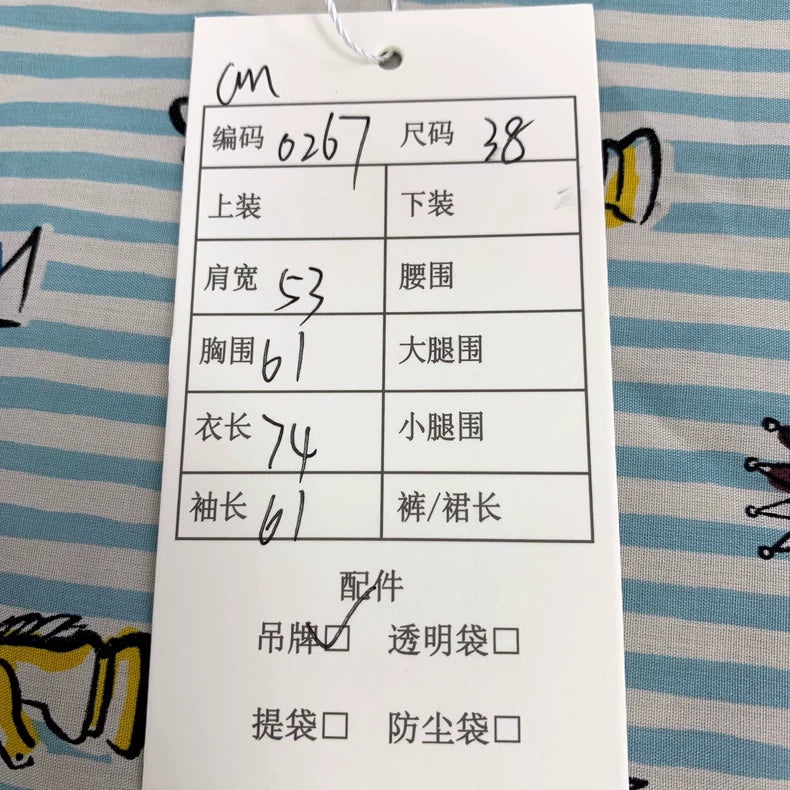 cm
编码 0267 尺码 38
上装 下装
肩宽 53 腰围
胸围 61 大腿围
衣长 74 小腿围
袖长 61 裤/裙长
配件
吊牌☑ 透明袋□
提袋□ 防尘袋□